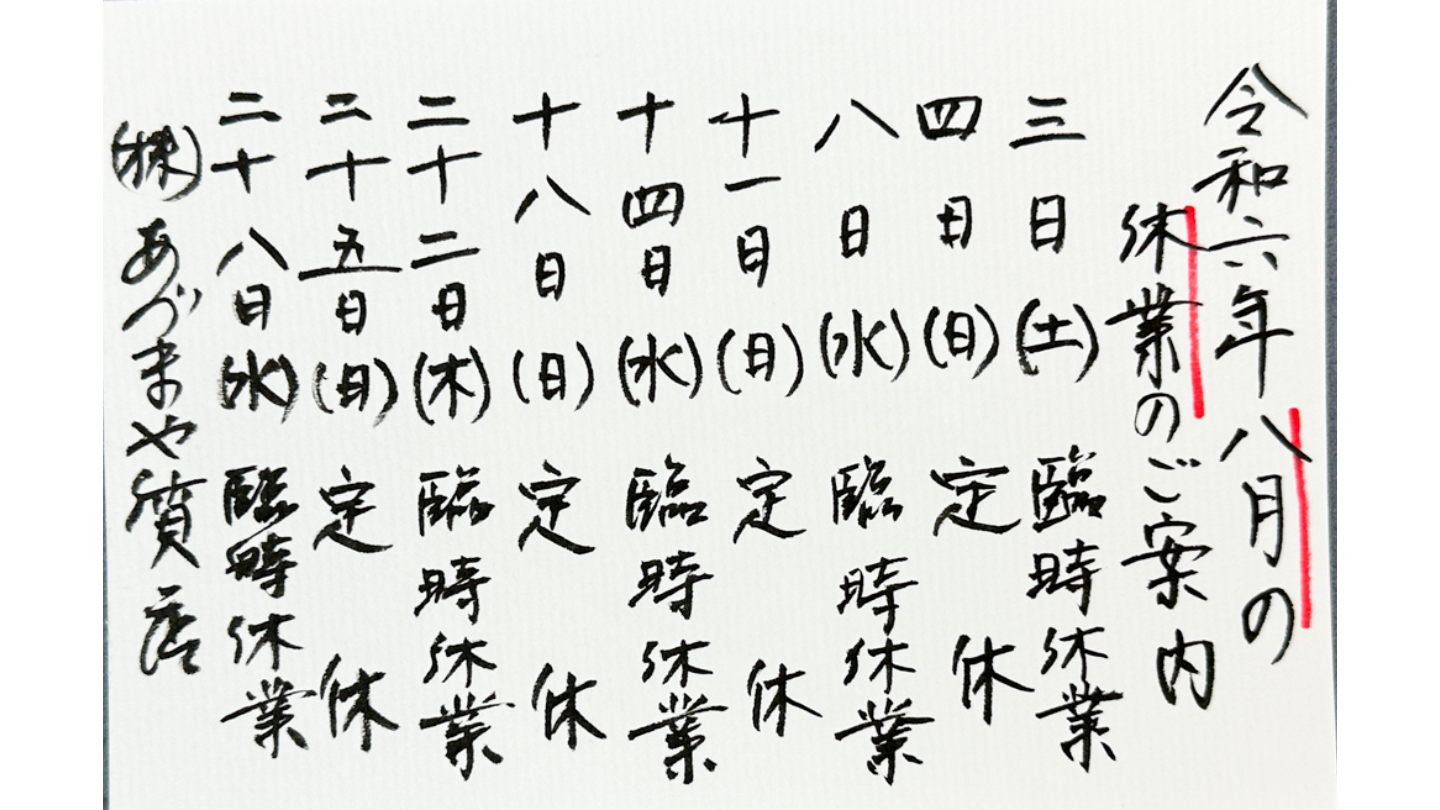 令和六年八月の
休業のご案内
三日(土)臨時休業
四日(日)定休
八日(水)臨時休業
十一日(日)定休
十四日(水)臨時休業
十八日(日)定休
二十二日(木)臨時休業
二十五日(日)定休
二十八日(水)臨時休業
(株)あづまや質店